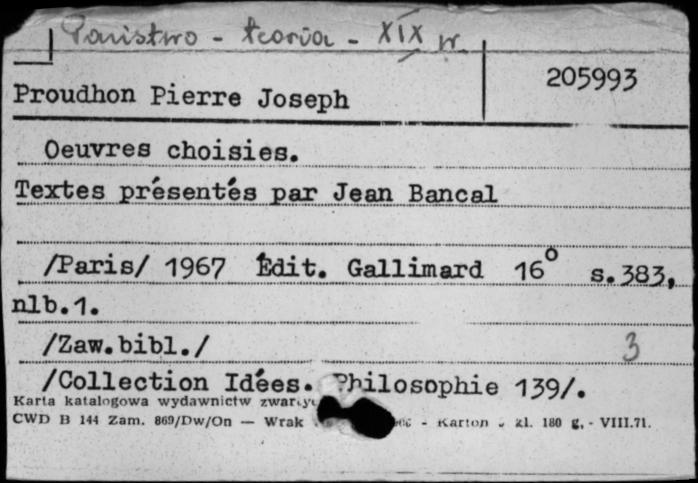 Państwo - teoria - XIX w.
205993
Proudhon Pierre Joseph
Oeuvres choisies.
Textes présentés par Jean Bancal
/Paris/ 1967 Édit. Gallimard 16° s.383,
nlb.1.
/Zaw.bibl./
3
/Collection Idées. Philosophie 139/.
Karta katalogowa wydawnictw
CWD B 144 Zam. 869/Dw/On — Wrak - Karton kl. 180 g. - VIII.71.